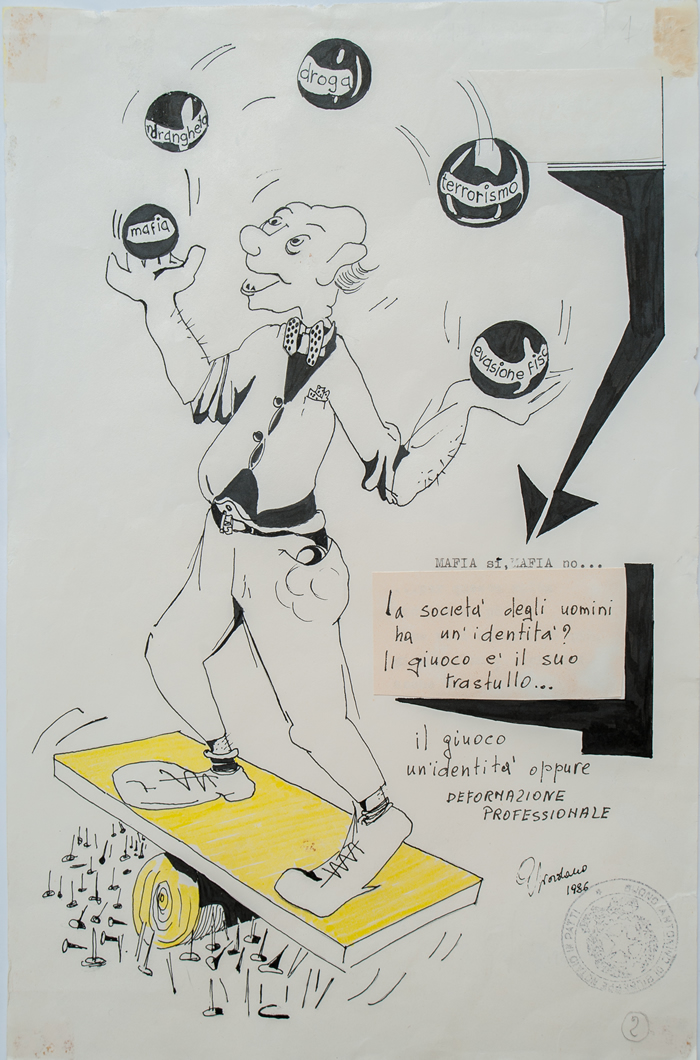 droga
'ndrangheta
terrorismo
mafia
evasione fisc
MAFIA sí, MAFIA no...
La società degli uomini
ha un'identità?
Il giuoco e' il suo
trastullo...
il giuoco
un'identità oppure
DEFORMAZIONE
PROFESSIONALE
Giordano
1986
2